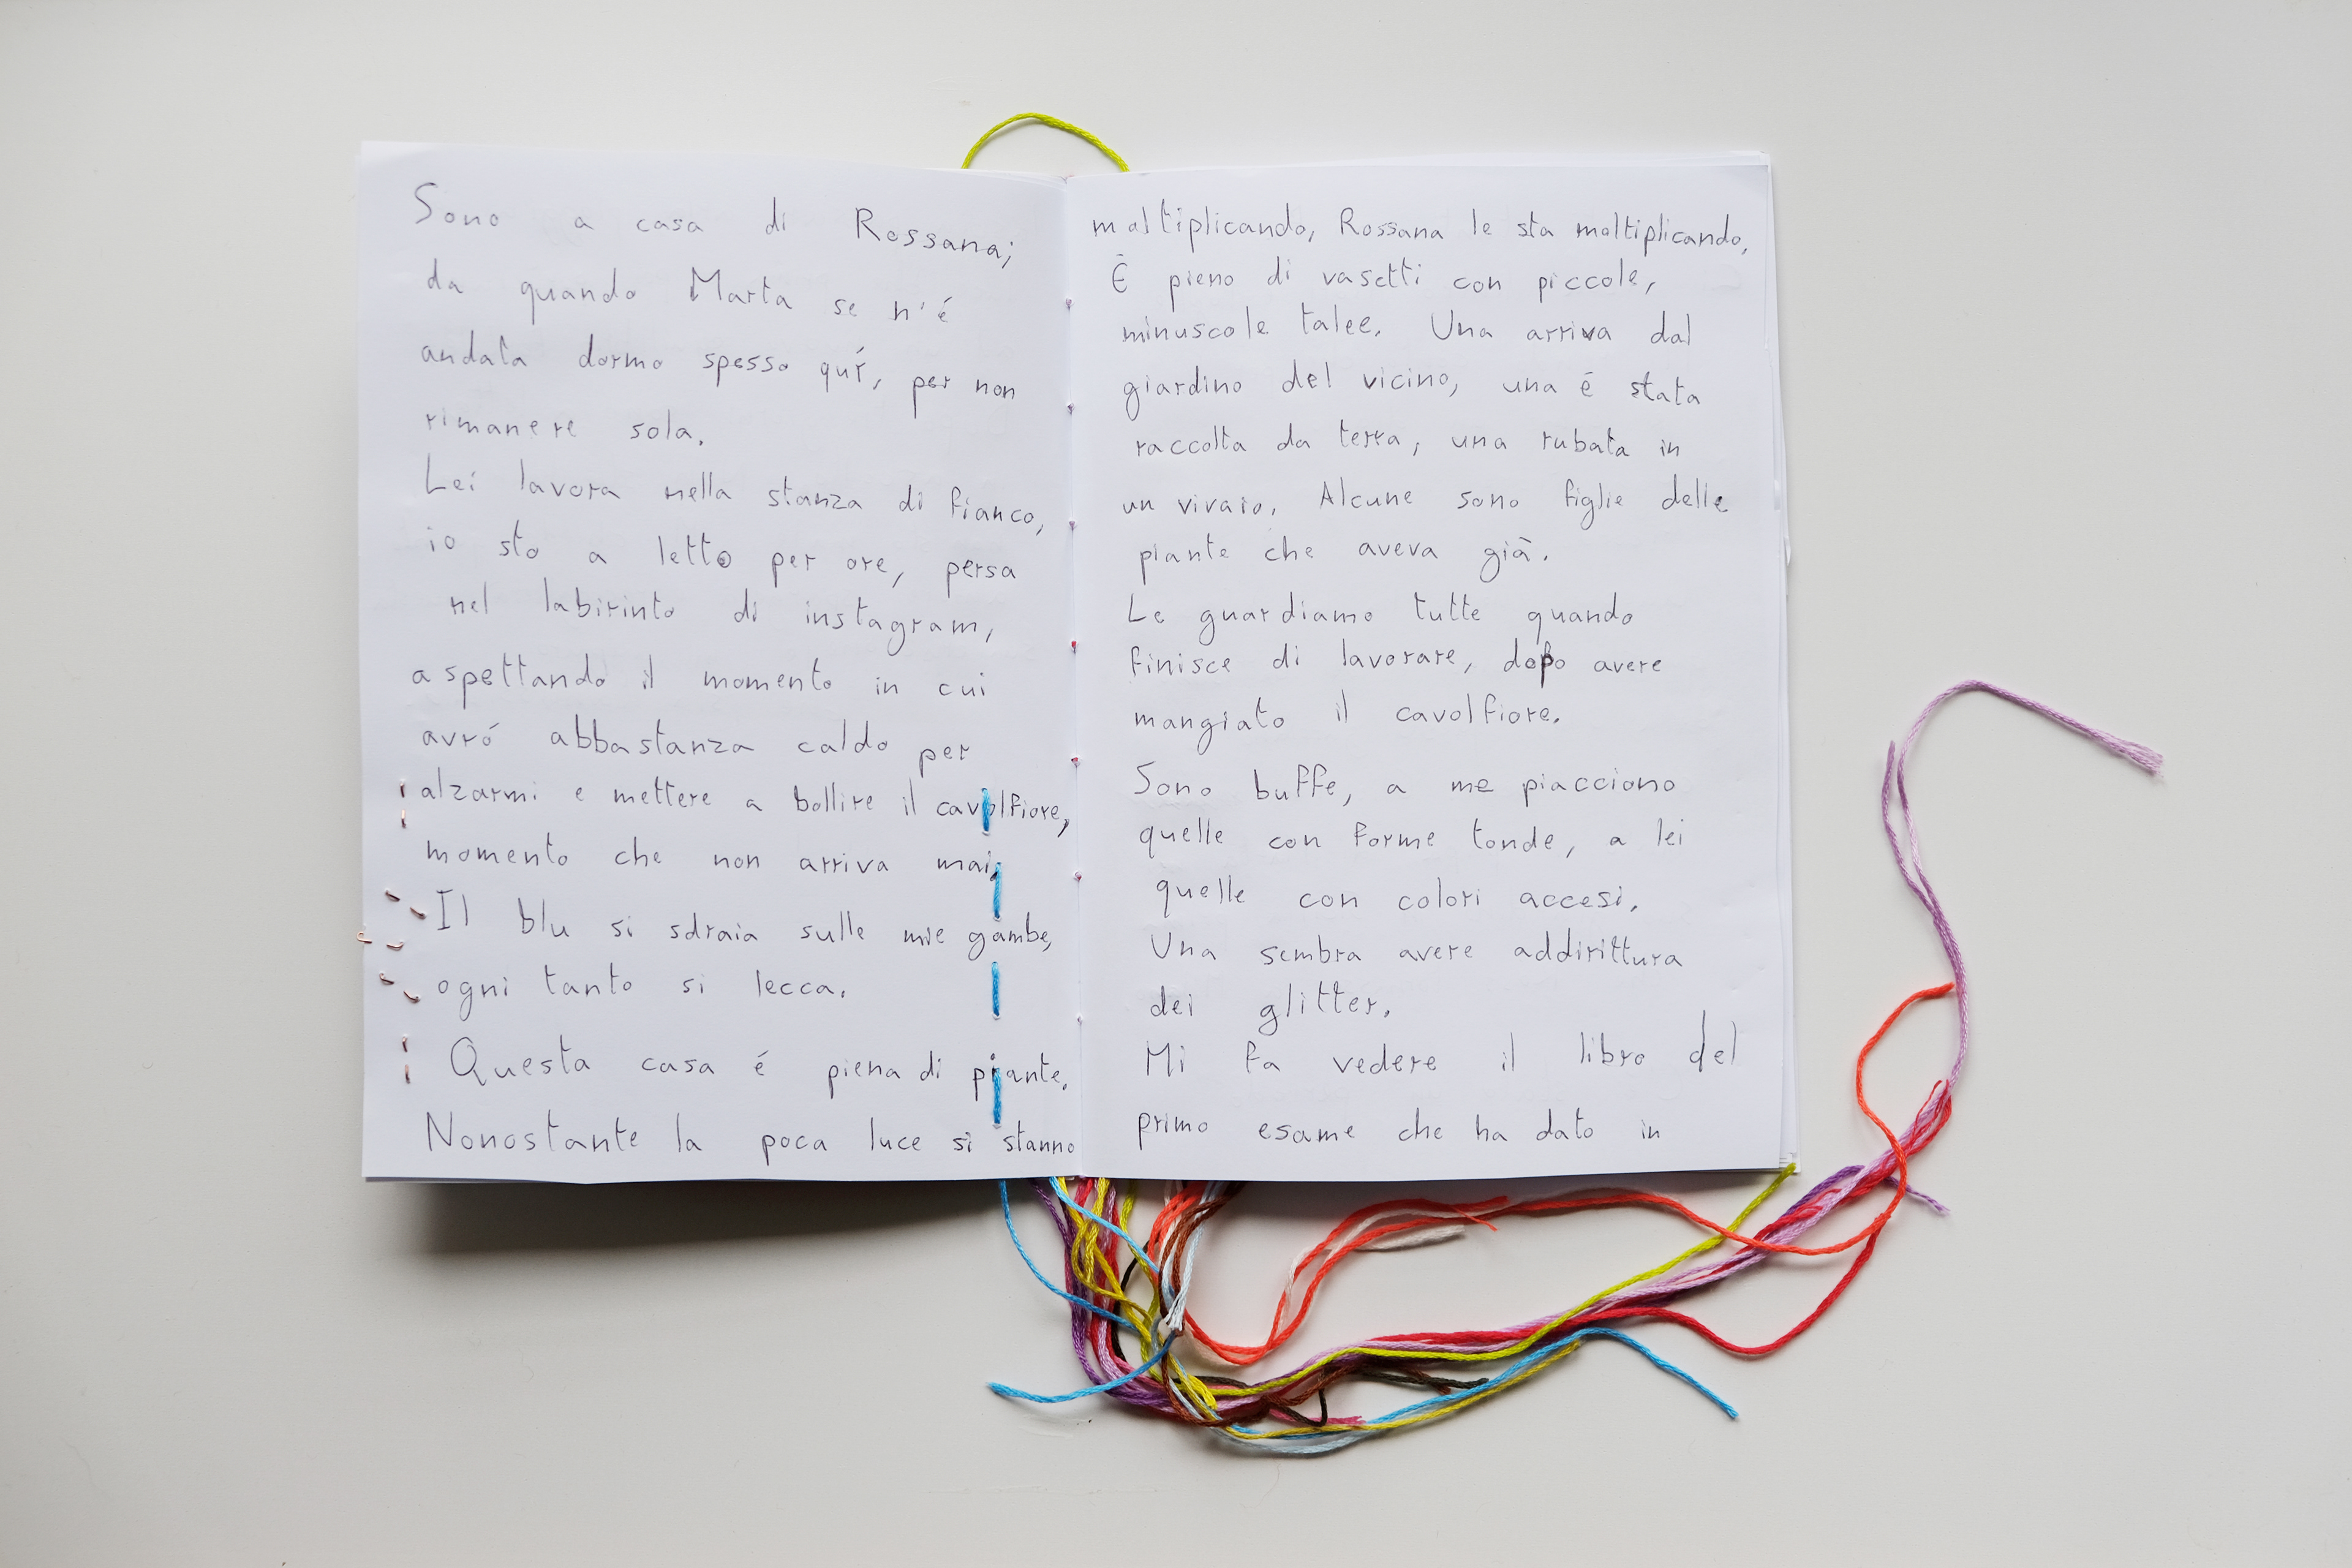 Sono a casa di Rossana;
da quando Marta se n'é
andata dormo spesso quí, per non
rimanere sola.
Lei lavora nella stanza di fianco,
io sto a letto per ore, persa
nel labirinto di instagram,
aspettando il momento in cui
avró abbastanza caldo per
alzarmi e mettere a bollire il cavolfiore,
momento che non arriva mai.
Il blu si sdraia sulle mie gambe,
ogni tanto si lecca.
Questa casa é piena di piante.
Nonostante la poca luce si stanno
moltiplicando, Rossana le sta moltiplicando.
È pieno di vasetti con piccole,
minuscole talee. Una arriva dal
giardino del vicino, una é stata
raccolta da terra, una rubata in
un vivaio. Alcune sono figlie delle
piante che aveva già.
Le guardiamo tutte quando
finisce di lavorare, dopo avere
mangiato il cavolfiore.
Sono buffe, a me piacciono
quelle con forme tonde, a lei
quelle con colori accesi.
Una sembra avere addirittura
dei glitter.
Mi fa vedere il libro del
primo esame che ha dato in